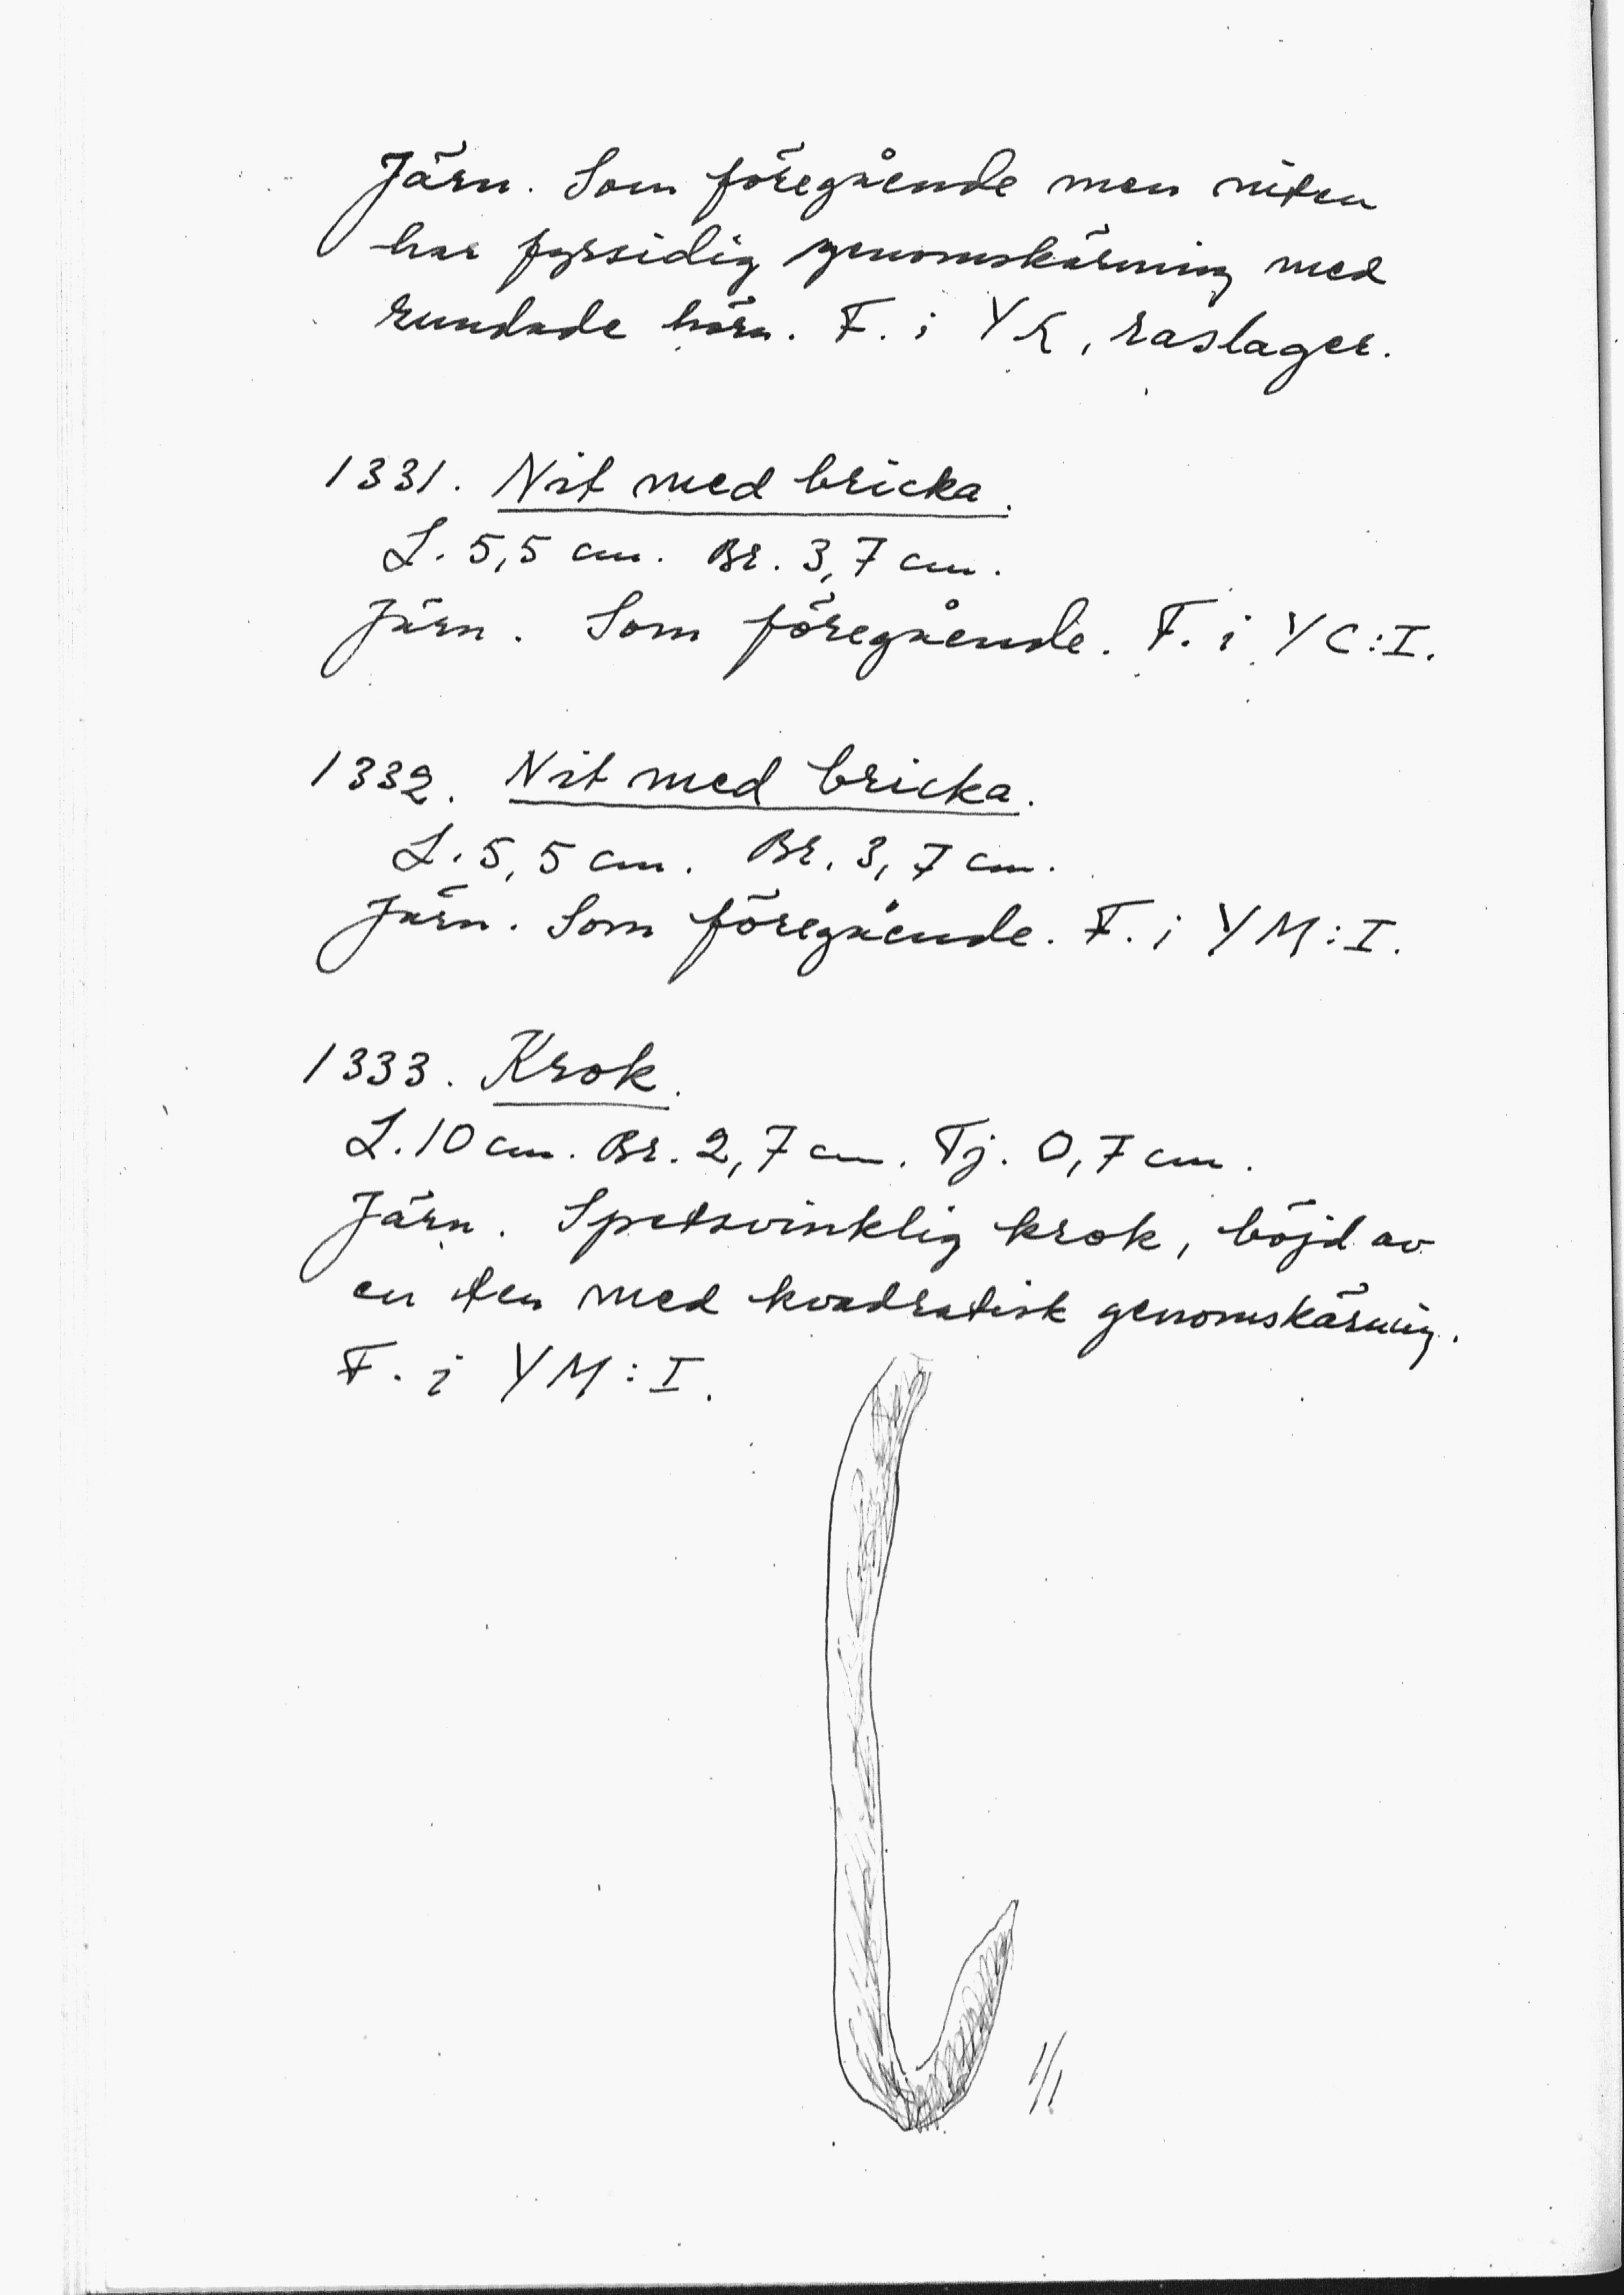 Järn. Som föregående men niten
har fyrsidig genomskärning med
rundade hörn. F. i YK, raslager.
1331. Nit med bricka.
L. 5,5 cm. Br. 3,7 cm.
Järn. Som föregående. F. i YC:I.
1332. Nit med bricka.
L. 5,5 cm. Br. 3,7 cm.
Järn. Som föregående. F. i YM:I.
1333. Krok.
L. 10 cm. Br. 2,7 cm. Tj. 0,7 cm.
Järn. Spetsvinklig krok, böjd av
en ten med kvadratisk genomskärning.
F. i YM:I.
1/1